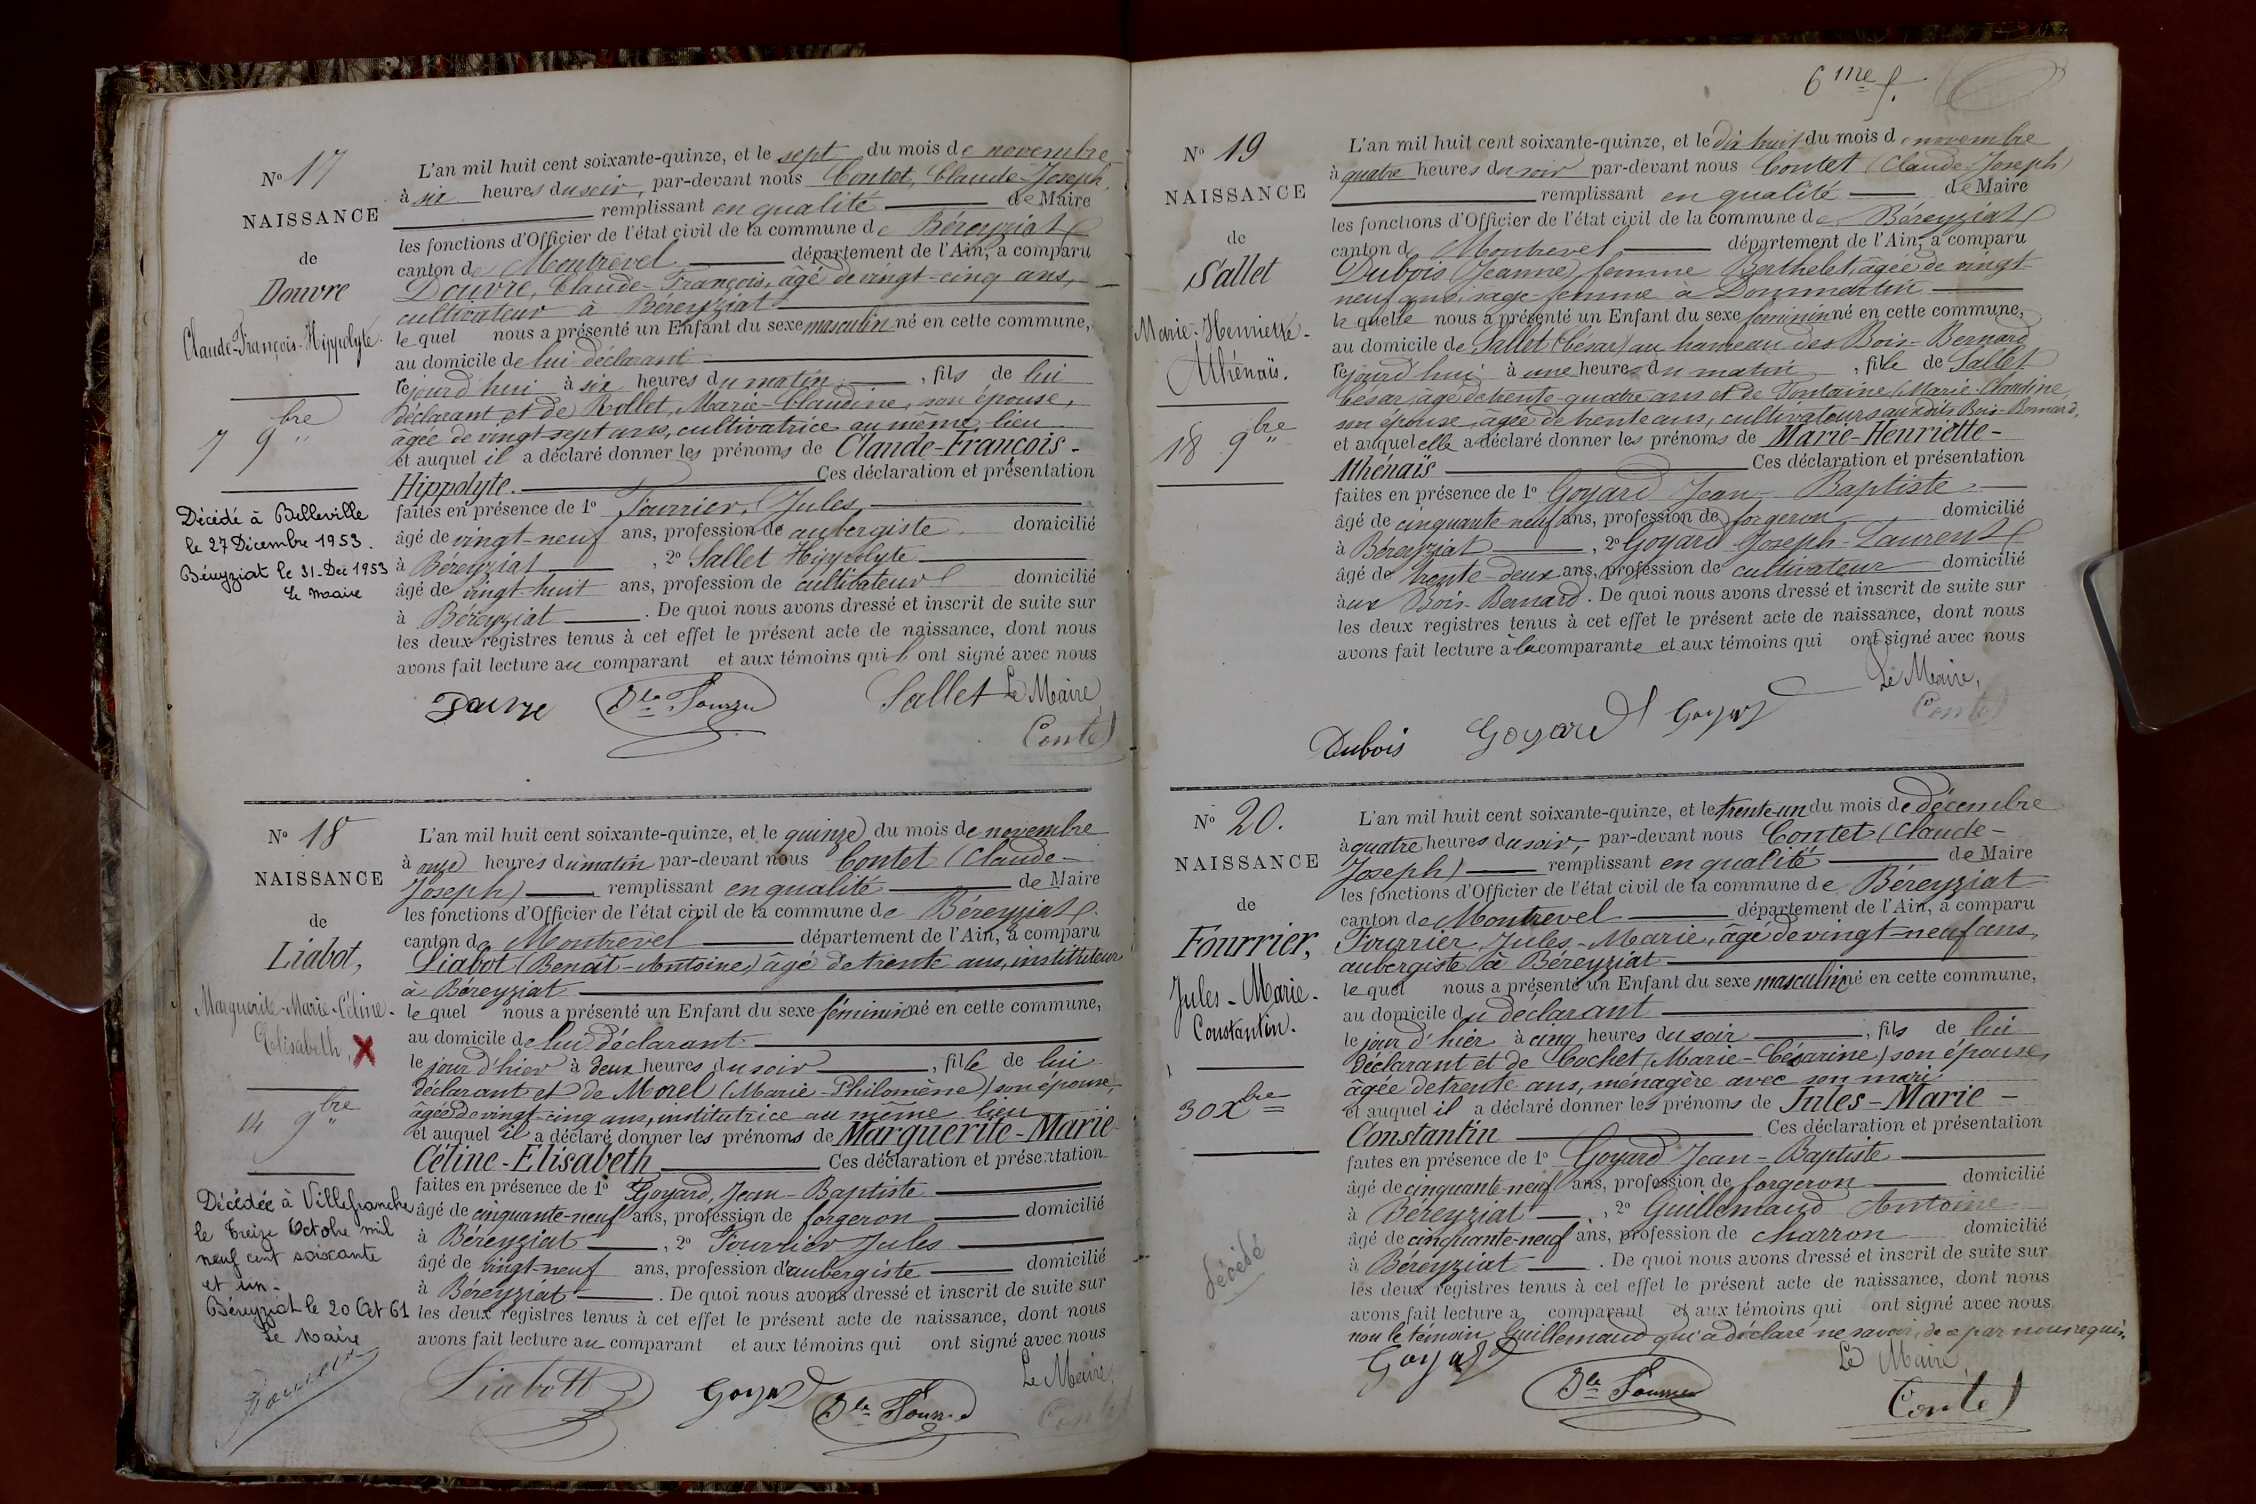 N° 17
NAISSANCE
de
Douvre
Claude-François-Hippolyte.
7 9bre "
Décédé à Belleville
le 27 Décembre 1953.
Béreyziat le 31-Dec 1953
Le Maire
L'an mil huit cent soixante-quinze, et le sept du mois de novembre
à six heures du soir, par-devant nous Contet, Claude-Joseph,
remplissant en qualité de Maire
les fonctions d'Officier de l'état civil de la commune de Béreyziat
canton de Montrevel département de l'Ain, a comparu
Douvre, Claude-François, âgé de vingt-cinq ans,
cultivateur à Béreyziat
lequel nous a présenté un Enfant du sexe masculin né en cette commune,
au domicile de lui déclarant
cejourd'hui à six heures du matin, fils de lui
déclarant et de Rollet, Marie-Claudine, son épouse,
âgée de vingt-sept ans, cultivatrice au même lieu
et auquel il a déclaré donner les prénoms de Claude-François-
Hippolyte. Ces déclaration et présentation
faites en présence de 1° Fourrier, Jules,
âgé de vingt-neuf ans, profession de aubergiste domicilié
à Béreyziat, 2° Sallet Hippolyte
âgé de vingt-huit ans, profession de cultivateur domicilié
à Béreyziat. De quoi nous avons dressé et inscrit de suite sur
les deux registres tenus à cet effet le présent acte de naissance, dont nous
avons fait lecture au comparant et aux témoins qui ont signé avec nous
Douvre Sallet Le Maire,
Contet
N° 18
NAISSANCE
de
Liabot,
Marguerite-Marie-Céline-
Elisabeth,
14 9bre "
Décédée à Villefranche
le treize Octobre mil
neuf cent soixante
et un-
Béreyziat le 20 Oct 61
Le Maire
L'an mil huit cent soixante-quinze, et le quinze du mois de novembre
à onze heures du matin par-devant nous Contet (Claude-
Joseph) remplissant en qualité de Maire
les fonctions d'Officier de l'état civil de la commune de Béreyziat
canton de Montrevel département de l'Ain, a comparu
Liabot (Benoît-Antoine) âgé de trente ans, instituteur
à Béreyziat
lequel nous a présenté un Enfant du sexe féminin né en cette commune,
au domicile de lui déclarant
le jour d'hier à deux heures du soir, fille de lui
déclarant et de Morel (Marie-Philomène) son épouse,
âgée de vingt-cinq ans, institutrice au même lieu
et auquel il a déclaré donner les prénoms de Marguerite-Marie-
Céline-Elisabeth Ces déclaration et présentation
faites en présence de 1° Goyard, Jean-Baptiste
âgé de cinquante-neuf ans, profession de forgeron domicilié
à Béreyziat, 2° Fourrier Jules
âgé de vingt-neuf ans, profession d'aubergiste domicilié
à Béreyziat. De quoi nous avons dressé et inscrit de suite sur
les deux registres tenus à cet effet le présent acte de naissance, dont nous
avons fait lecture au comparant et aux témoins qui ont signé avec nous
Le Maire,
Liabott Goyard Contet
6me f.
N° 19
NAISSANCE
de
Sallet
Marie-Henriette-
Athénaïs.
18 9bre "
L'an mil huit cent soixante-quinze, et le dix huit du mois de novembre
à quatre heures du soir par-devant nous Contet (Claude-Joseph)
remplissant en qualité de Maire
les fonctions d'Officier de l'état civil de la commune de Béreyziat
canton de Montrevel département de l'Ain, a comparu
Dubois (Jeanne) femme Berthelet, âgée de vingt
neuf ans, sage-femme à Dommartin
laquelle nous a présenté un Enfant du sexe féminin né en cette commune,
au domicile de Sallet (César) au hameau des Bois-Bernard
cejourd'hui à une heure du matin, fille de Sallet
César, âgé de trente-quatre ans et de Fontaine (Marie-Claudine,
son épouse, âgée de trente ans, cultivateurs aux dits Bois-Bernard,
et auquel elle a déclaré donner les prénoms de Marie-Henriette-
Athénaïs Ces déclaration et présentation
faites en présence de 1° Goyard Jean-Baptiste
âgé de cinquante-neuf ans, profession de forgeron domicilié
à Béreyziat, 2° Goyard Joseph-Laurent
âgé de trente-deux ans, profession de cultivateur domicilié
aux Bois-Bernard. De quoi nous avons dressé et inscrit de suite sur
les deux registres tenus à cet effet le présent acte de naissance, dont nous
avons fait lecture à la comparante et aux témoins qui ont signé avec nous
Le Maire,
Contet
Dubois Goyard Goyard
N° 20.
NAISSANCE
de
Fourrier,
Jules-Marie-
Constantin.
30 Xbre
Décédé
L'an mil huit cent soixante-quinze, et le trente-un du mois de décembre
à quatre heures du soir, par-devant nous Contet (Claude-
Joseph) remplissant en qualité de Maire
les fonctions d'Officier de l'état civil de la commune de Béreyziat
canton de Montrevel département de l'Ain, a comparu
Fourrier, Jules-Marie, âgé de vingt-neuf ans,
aubergiste à Béreyziat
lequel nous a présenté un Enfant du sexe masculin né en cette commune,
au domicile du déclarant
le jour d'hier à cinq heures du soir, fils de lui
déclarant et de Cochet (Marie-Césarine) son épouse,
âgée de trente ans, ménagère avec son mari
et auquel il a déclaré donner les prénoms de Jules-Marie-
Constantin Ces déclaration et présentation
faites en présence de 1° Goyard Jean-Baptiste
âgé de cinquante-neuf ans, profession de forgeron domicilié
à Béreyziat, 2° Guillemaud Antoine
âgé de cinquante-neuf ans, profession de charron domicilié
à Béreyziat. De quoi nous avons dressé et inscrit de suite sur
les deux registres tenus à cet effet le présent acte de naissance, dont nous
avons fait lecture a comparant et aux témoins qui ont signé avec nous
non le témoin Guillemaud qui a déclaré ne savoir, de ce par nous requis.
Goyard Le Maire,
Contet